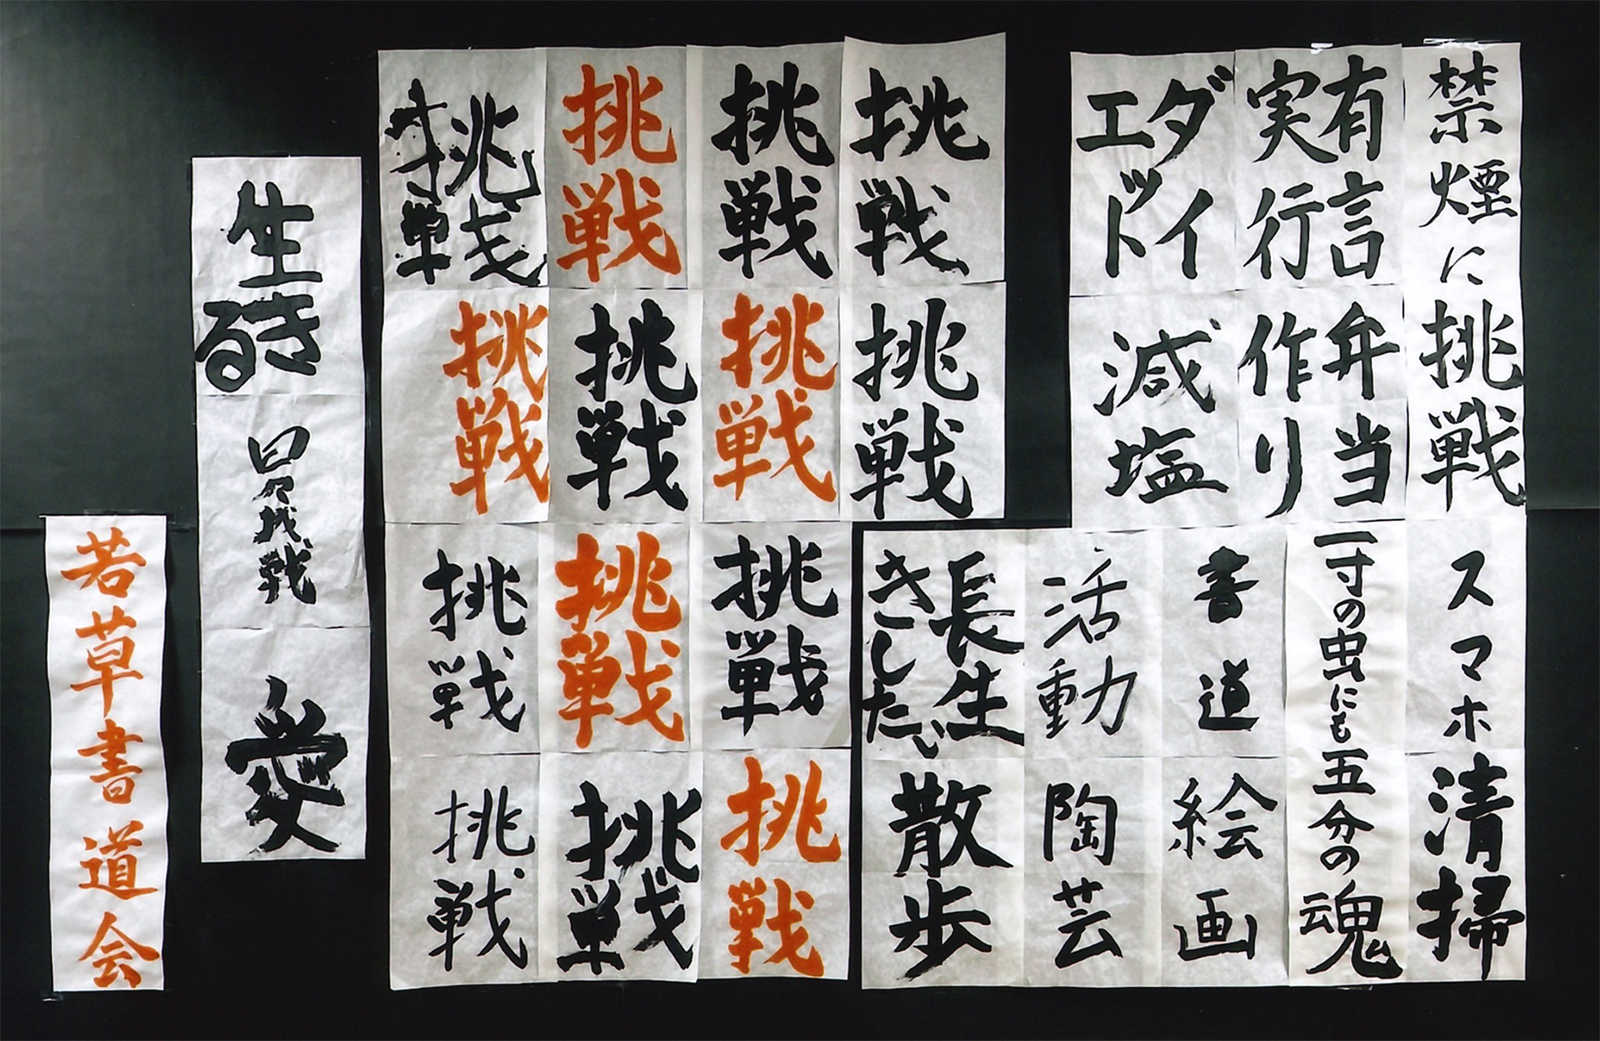 禁煙に
挑戦
スマホ
清掃
有言
実行
弁当
作り
一寸の虫にも五分の魂
ダイ
エット
減塩
書道
絵画
活動
陶芸
長生
きしたい
散歩
挑戦
挑戦
挑戦
挑戦
挑戦
挑戦
挑戦
挑戦
挑戦
挑戦
挑戦
挑戦
挑戦
挑戦
生き
る
愛
若草書道会